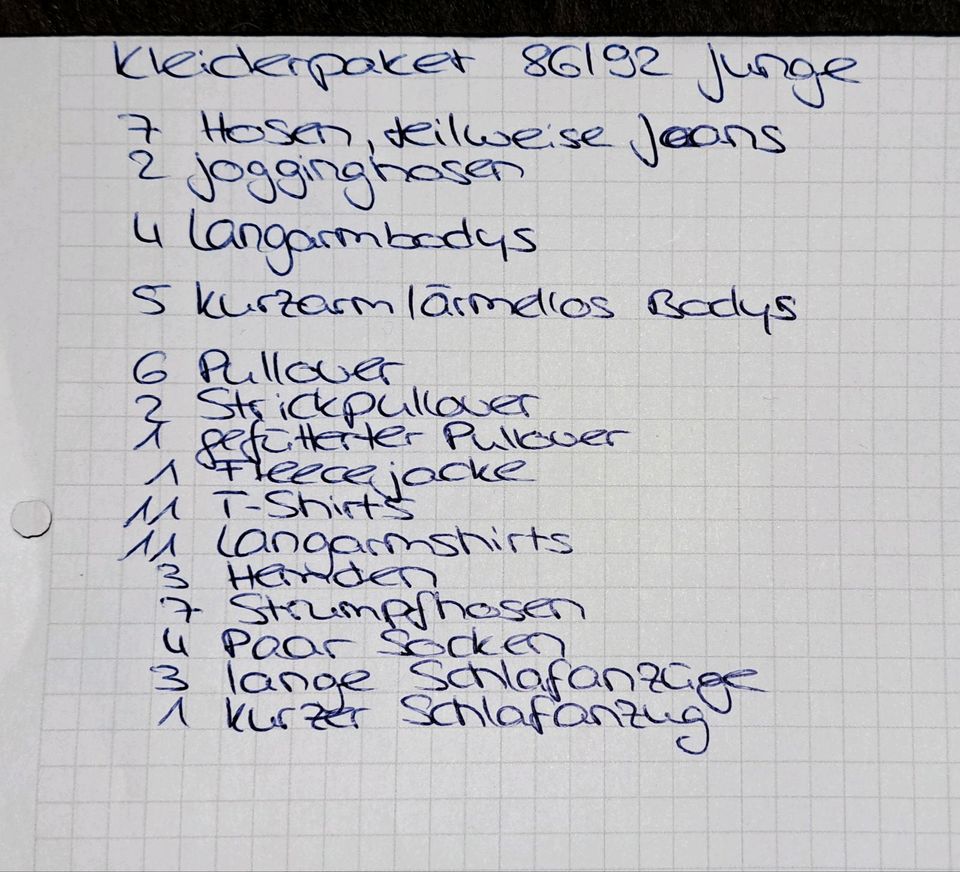 Kleiderpaket 86/92 Junge
7 Hosen, teilweise Jeans
2 Jogginghosen
4 Langarmbodys
5 kurzarm/ärmellos Bodys
6 Pullover
2 Strickpullover
1 gefütterter Pullover
1 Fleecejacke
11 T-Shirts
11 Langarmshirts
3 Hemden
7 Strumpfhosen
4 Paar Socken
3 lange Schlafanzüge
1 kurzer Schlafanzug